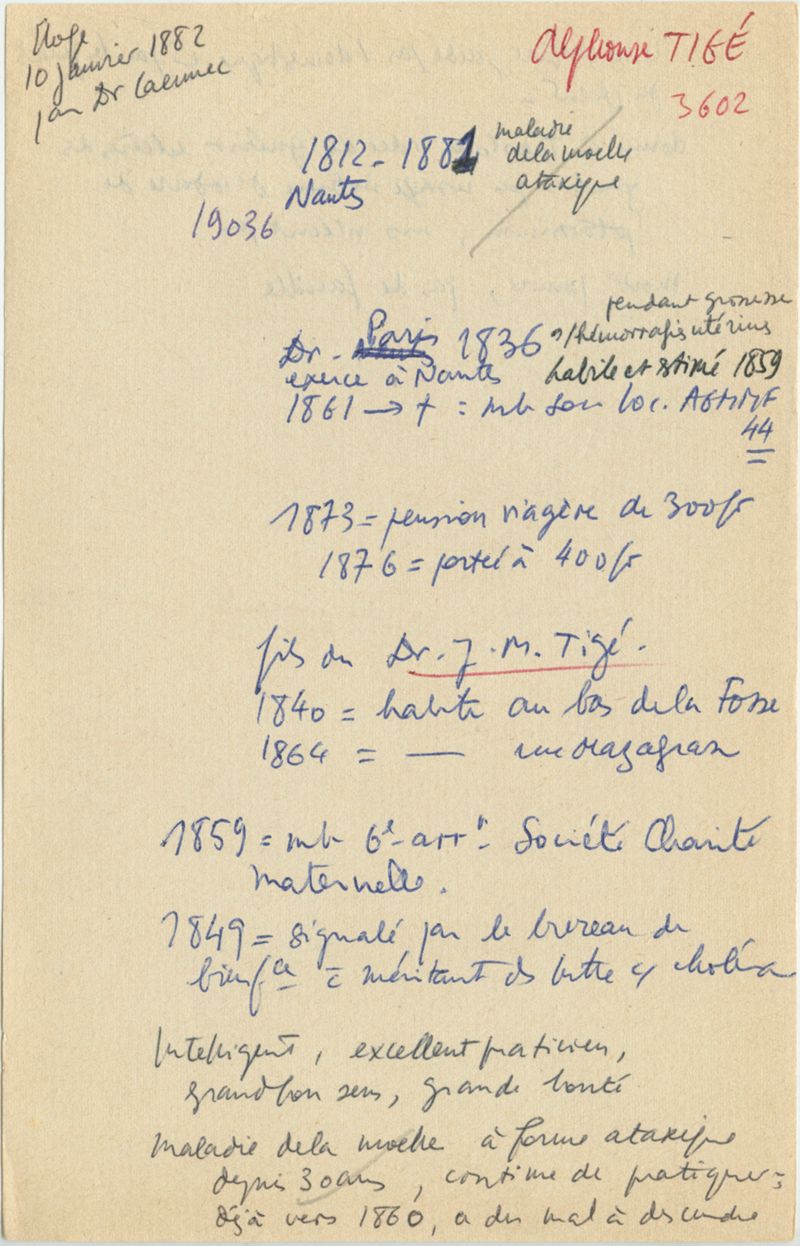 Eloge
10 janvier 1882
par Dr Laennec
Alphonse TIGÉ
3602
1812 - 1881
Nantes
19036
maladie
de la moelle
ataxique
pendant grossesse
s/hémorragies utérines
Dr - Paris 1836
habile et estimé 1859
exerce à Nantes
1861 → † = mb Son loc. AGMMF
44
1873 = pension viagère de 300fr
1876 = portée à 400fr
fils du Dr. J. M. Tigé.
1840 = habite au bas de la Fosse
1864 = — rue Mazagran
1859 = mb 6e arrt Société Charité
Maternelle.
1849 = signalé par le bureau de
bienfce = méritant ds lutte c/ choléra
Intelligent, excellent praticien,
grand bon sens, grande bonté
Maladie de la moelle à forme ataxique
depuis 30 ans, continue de pratiquer =
déjà vers 1860, a du mal à descendre